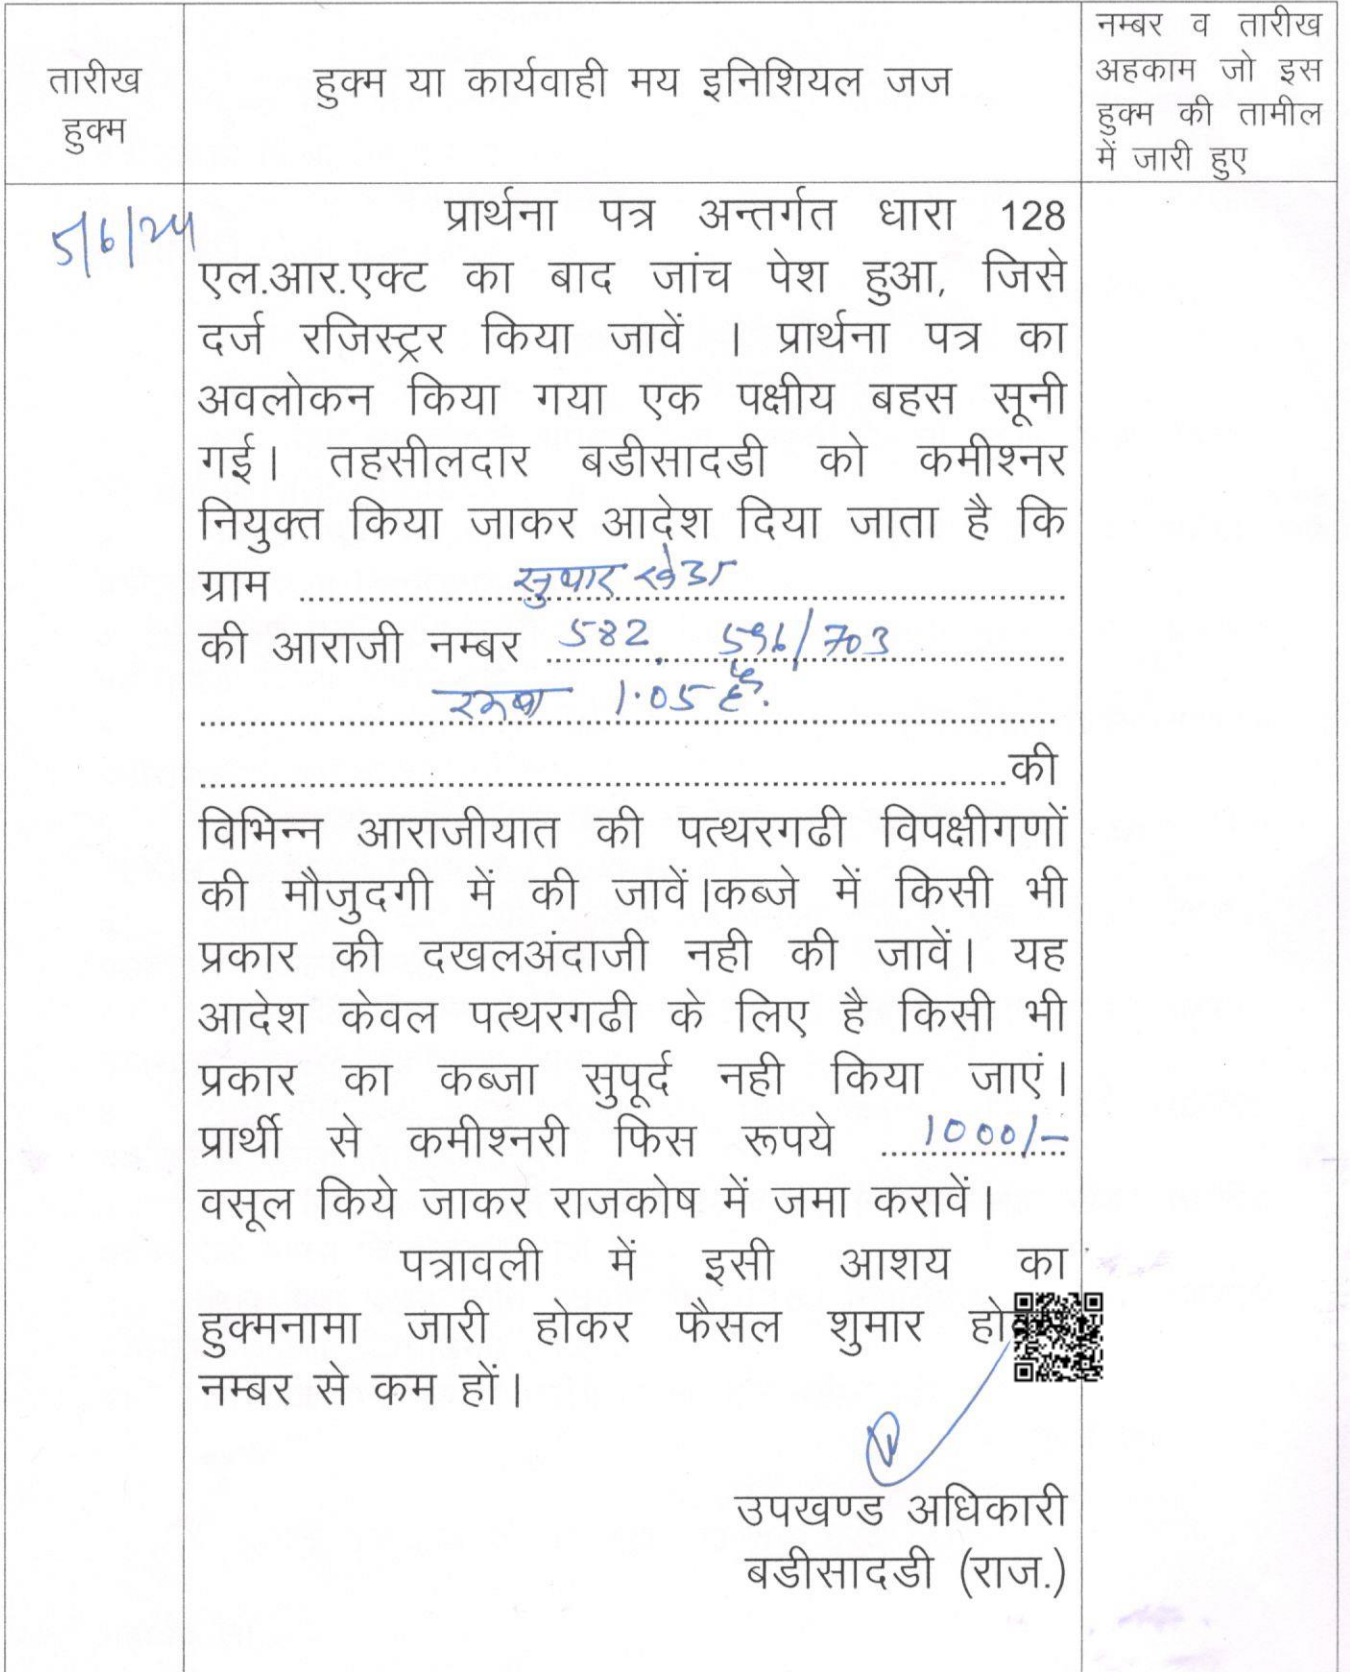 तारीख
हुक्म
हुक्म या कार्यवाही मय इनिशियल जज
नम्बर व तारीख
अहकाम जो इस
हुक्म की तामील
में जारी हुए
5/6/24
प्रार्थना पत्र अन्तर्गत धारा 128
एल.आर.एक्ट का बाद जांच पेश हुआ, जिसे
दर्ज रजिस्ट्रर किया जावें । प्रार्थना पत्र का
अवलोकन किया गया एक पक्षीय बहस सूनी
गई। तहसीलदार बडीसादडी को कमीश्नर
नियुक्त किया जाकर आदेश दिया जाता है कि
ग्राम ........ सुथार खेडा ........
की आराजी नम्बर 582, 596/703
रकबा 1.05 है.
........की
विभिन्न आराजीयात की पत्थरगढी विपक्षीगणों
की मौजुदगी में की जावें।कब्जे में किसी भी
प्रकार की दखलअंदाजी नही की जावें। यह
आदेश केवल पत्थरगढी के लिए है किसी भी
प्रकार का कब्जा सुपूर्द नही किया जाएं।
प्रार्थी से कमीश्नरी फिस रूपये 1000/-
वसूल किये जाकर राजकोष में जमा करावें।
पत्रावली में इसी आशय का
हुक्मनामा जारी होकर फैसल शुमार हो
नम्बर से कम हों।
उपखण्ड अधिकारी
बडीसादडी (राज.)